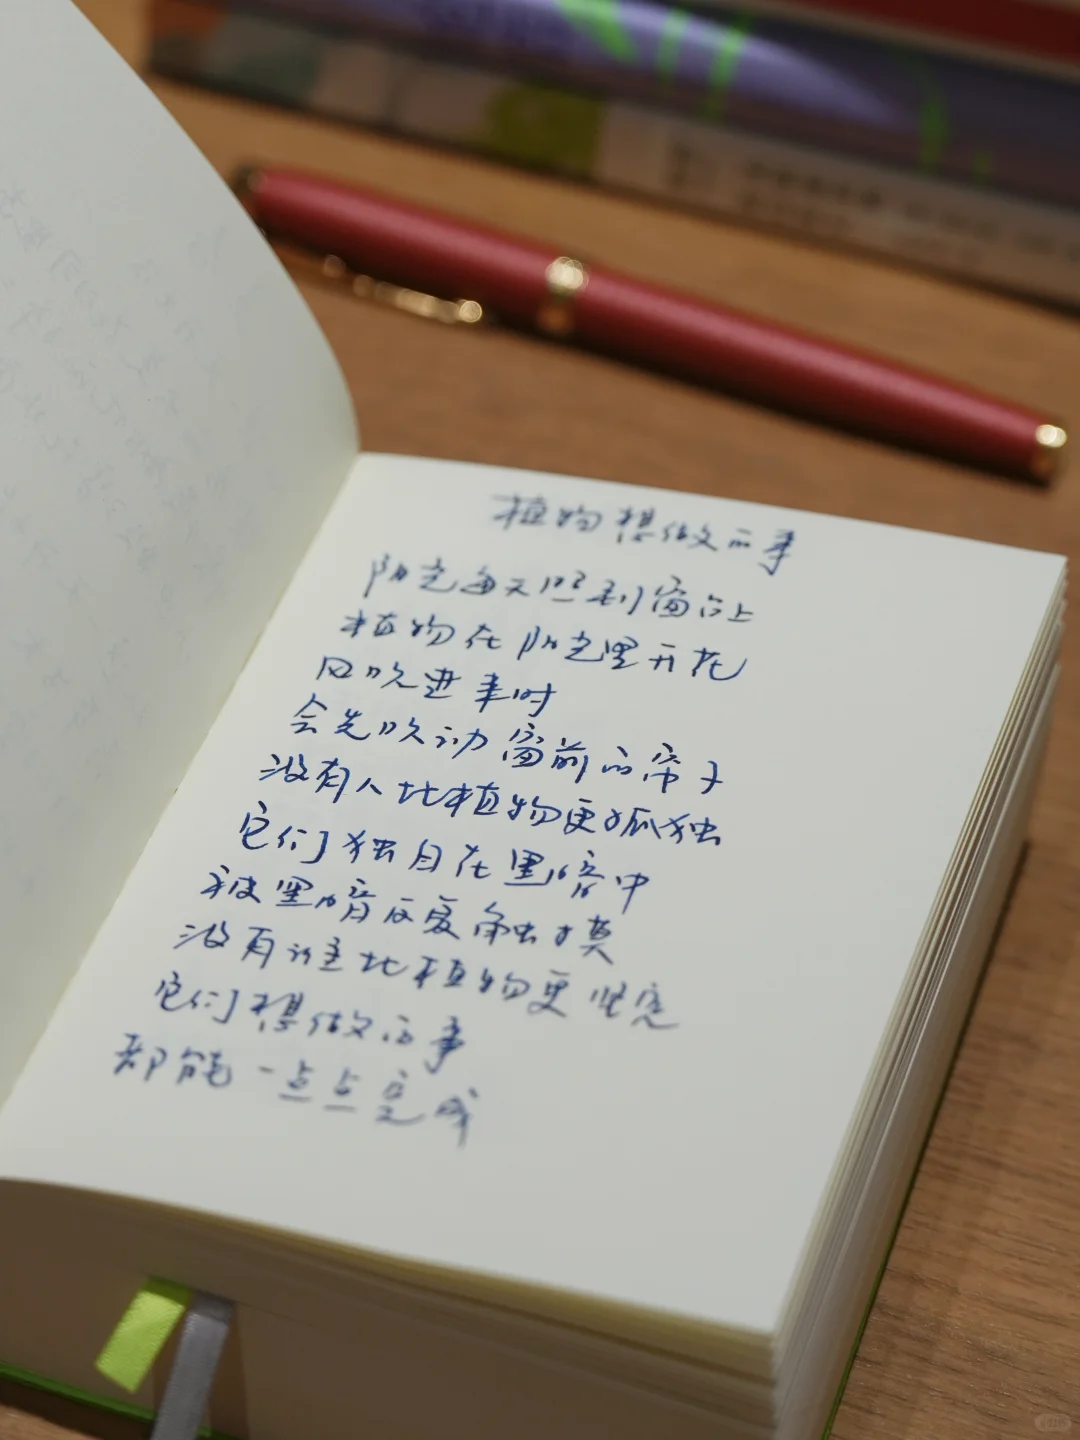 植物想做的事
阳光每天照到窗台上
植物在阳光里开花
风吹进来时
会先吹动窗前的帘子
没有人比植物更孤独
它们独自在黑暗中
被黑暗反复触摸
没有谁比植物更坚定
它们想做的事
都能一点点完成